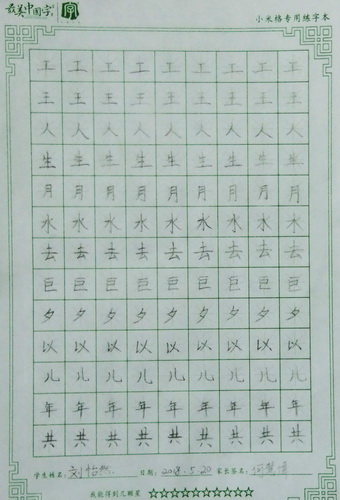 最美中国字 字
小米格专用练字本
工 工 工 工 工 工 工 工 工
王 王 王 王 王 王 王 王 王
人 人 人 人 人 人 人 人 人
生 生 生 生 生 生 生 生 生
月 月 月 月 月 月 月 月 月
水 水 水 水 水 水 水 水 水
去 去 去 去 去 去 去 去 去
巨 巨 巨 巨 巨 巨 巨 巨 巨
夕 夕 夕 夕 夕 夕 夕 夕 夕
以 以 以 以 以 以 以 以 以
儿 儿 儿 儿 儿 儿 儿 儿 儿
年 年 年 年 年 年 年 年 年
共 共 共 共 共 共 共 共 共
学生姓名: 刘怡然 日期: 2018.5.20 家长签名:
我能得到几颗星 ☆☆☆☆☆☆☆☆☆☆